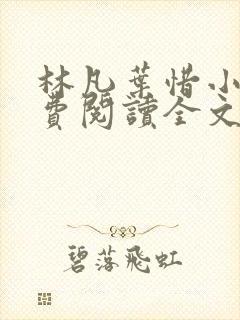 林凡葉惜小
費閱讀全文
碧落飛虹